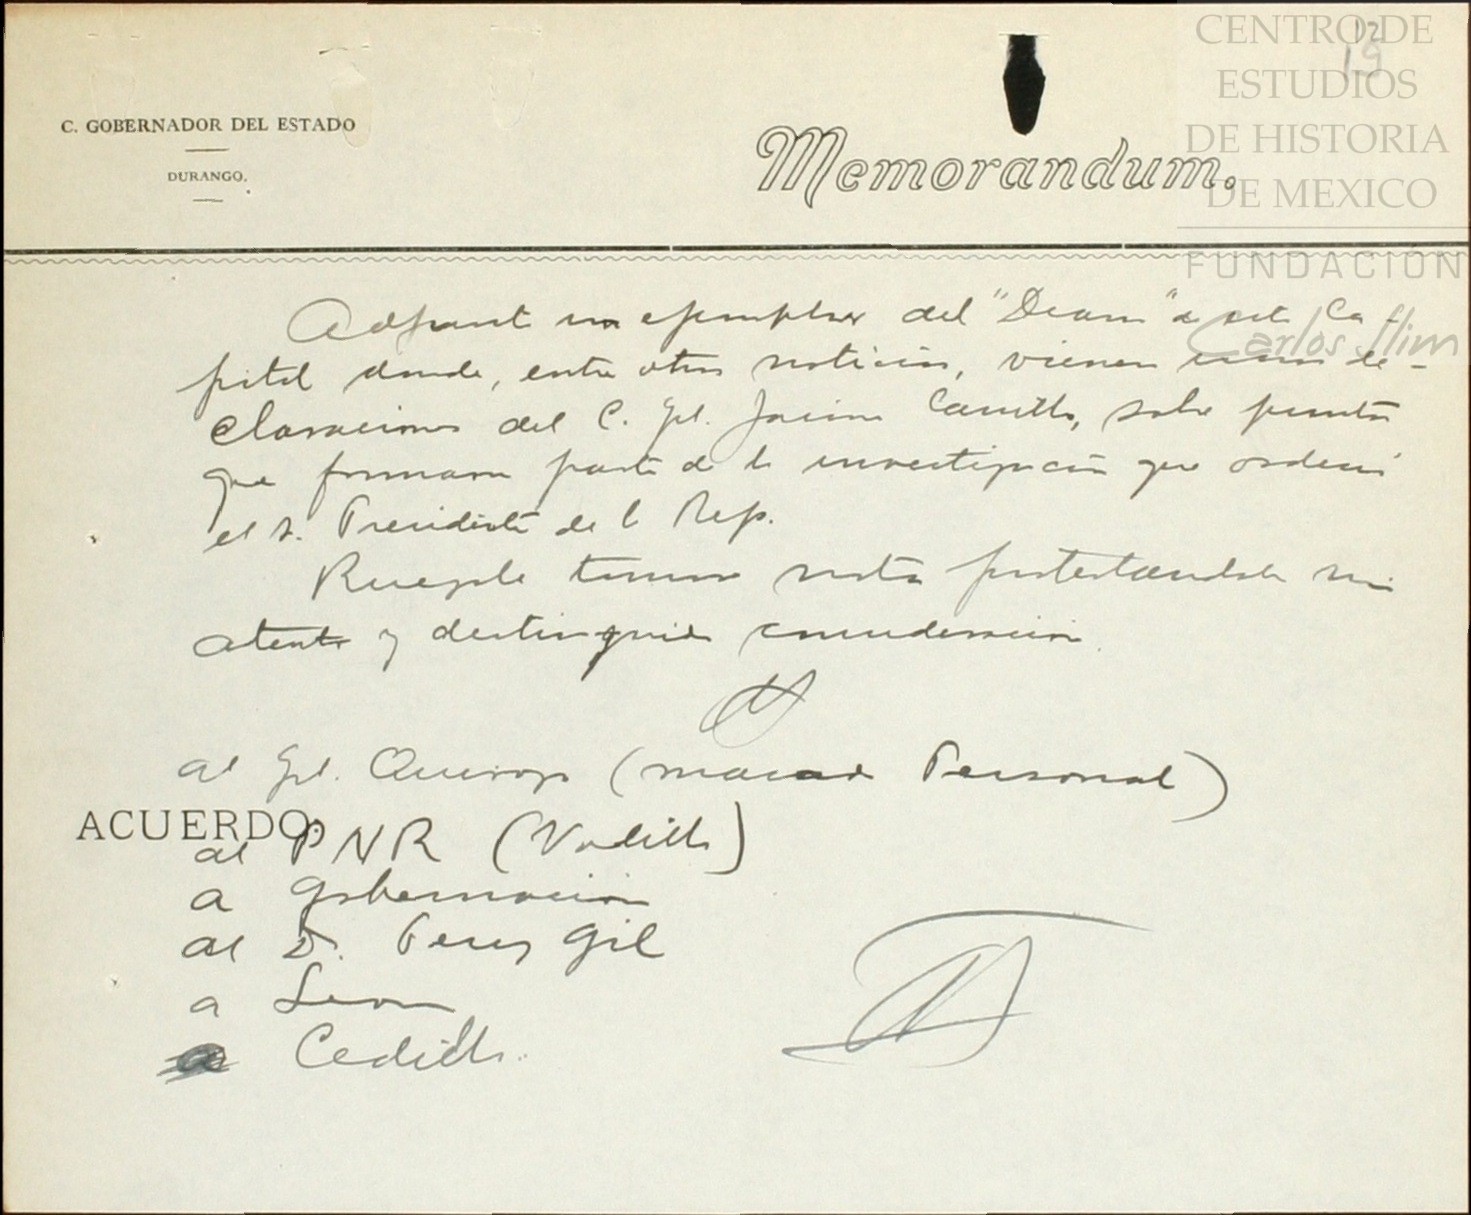 12
19
CENTRO DE
ESTUDIOS
DE HISTORIA
DE MEXICO
FUNDACIÓN
Carlos Slim
C. GOBERNADOR DEL ESTADO
DURANGO.
Memorandum.
Adjunto un ejemplar del "Diario" de esta Ca-
pital donde, entre otras noticias, vienen unas de-
claraciones del C. Gral. Jaime Carrillo, sobre puntos
que forman parte de la investigación que ordenó
el S. Presidente de la Rep.
Ruégole tomar nota protestandole mi
atenta y distinguida consideración.
al Gral. Quiroga (marcada Personal)
ACUERDO:
al PNR (Vadillo)
a Gobernación
al D. Perez Gil
a Leon
a Cedillo.